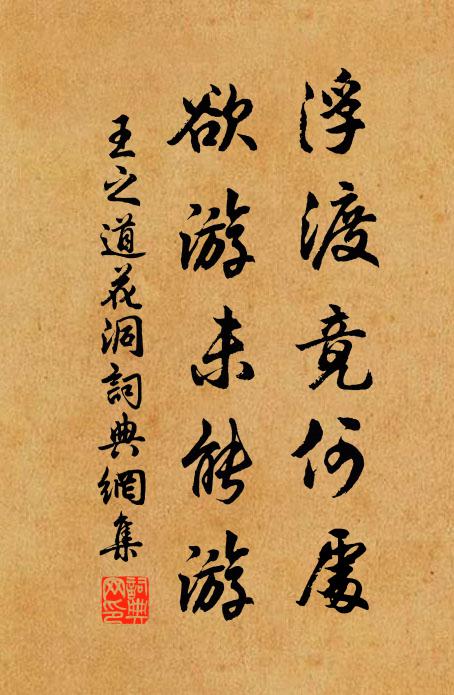 浮渡竟何處
欲游未能游
王之道花洞詞典網集
詞典網印